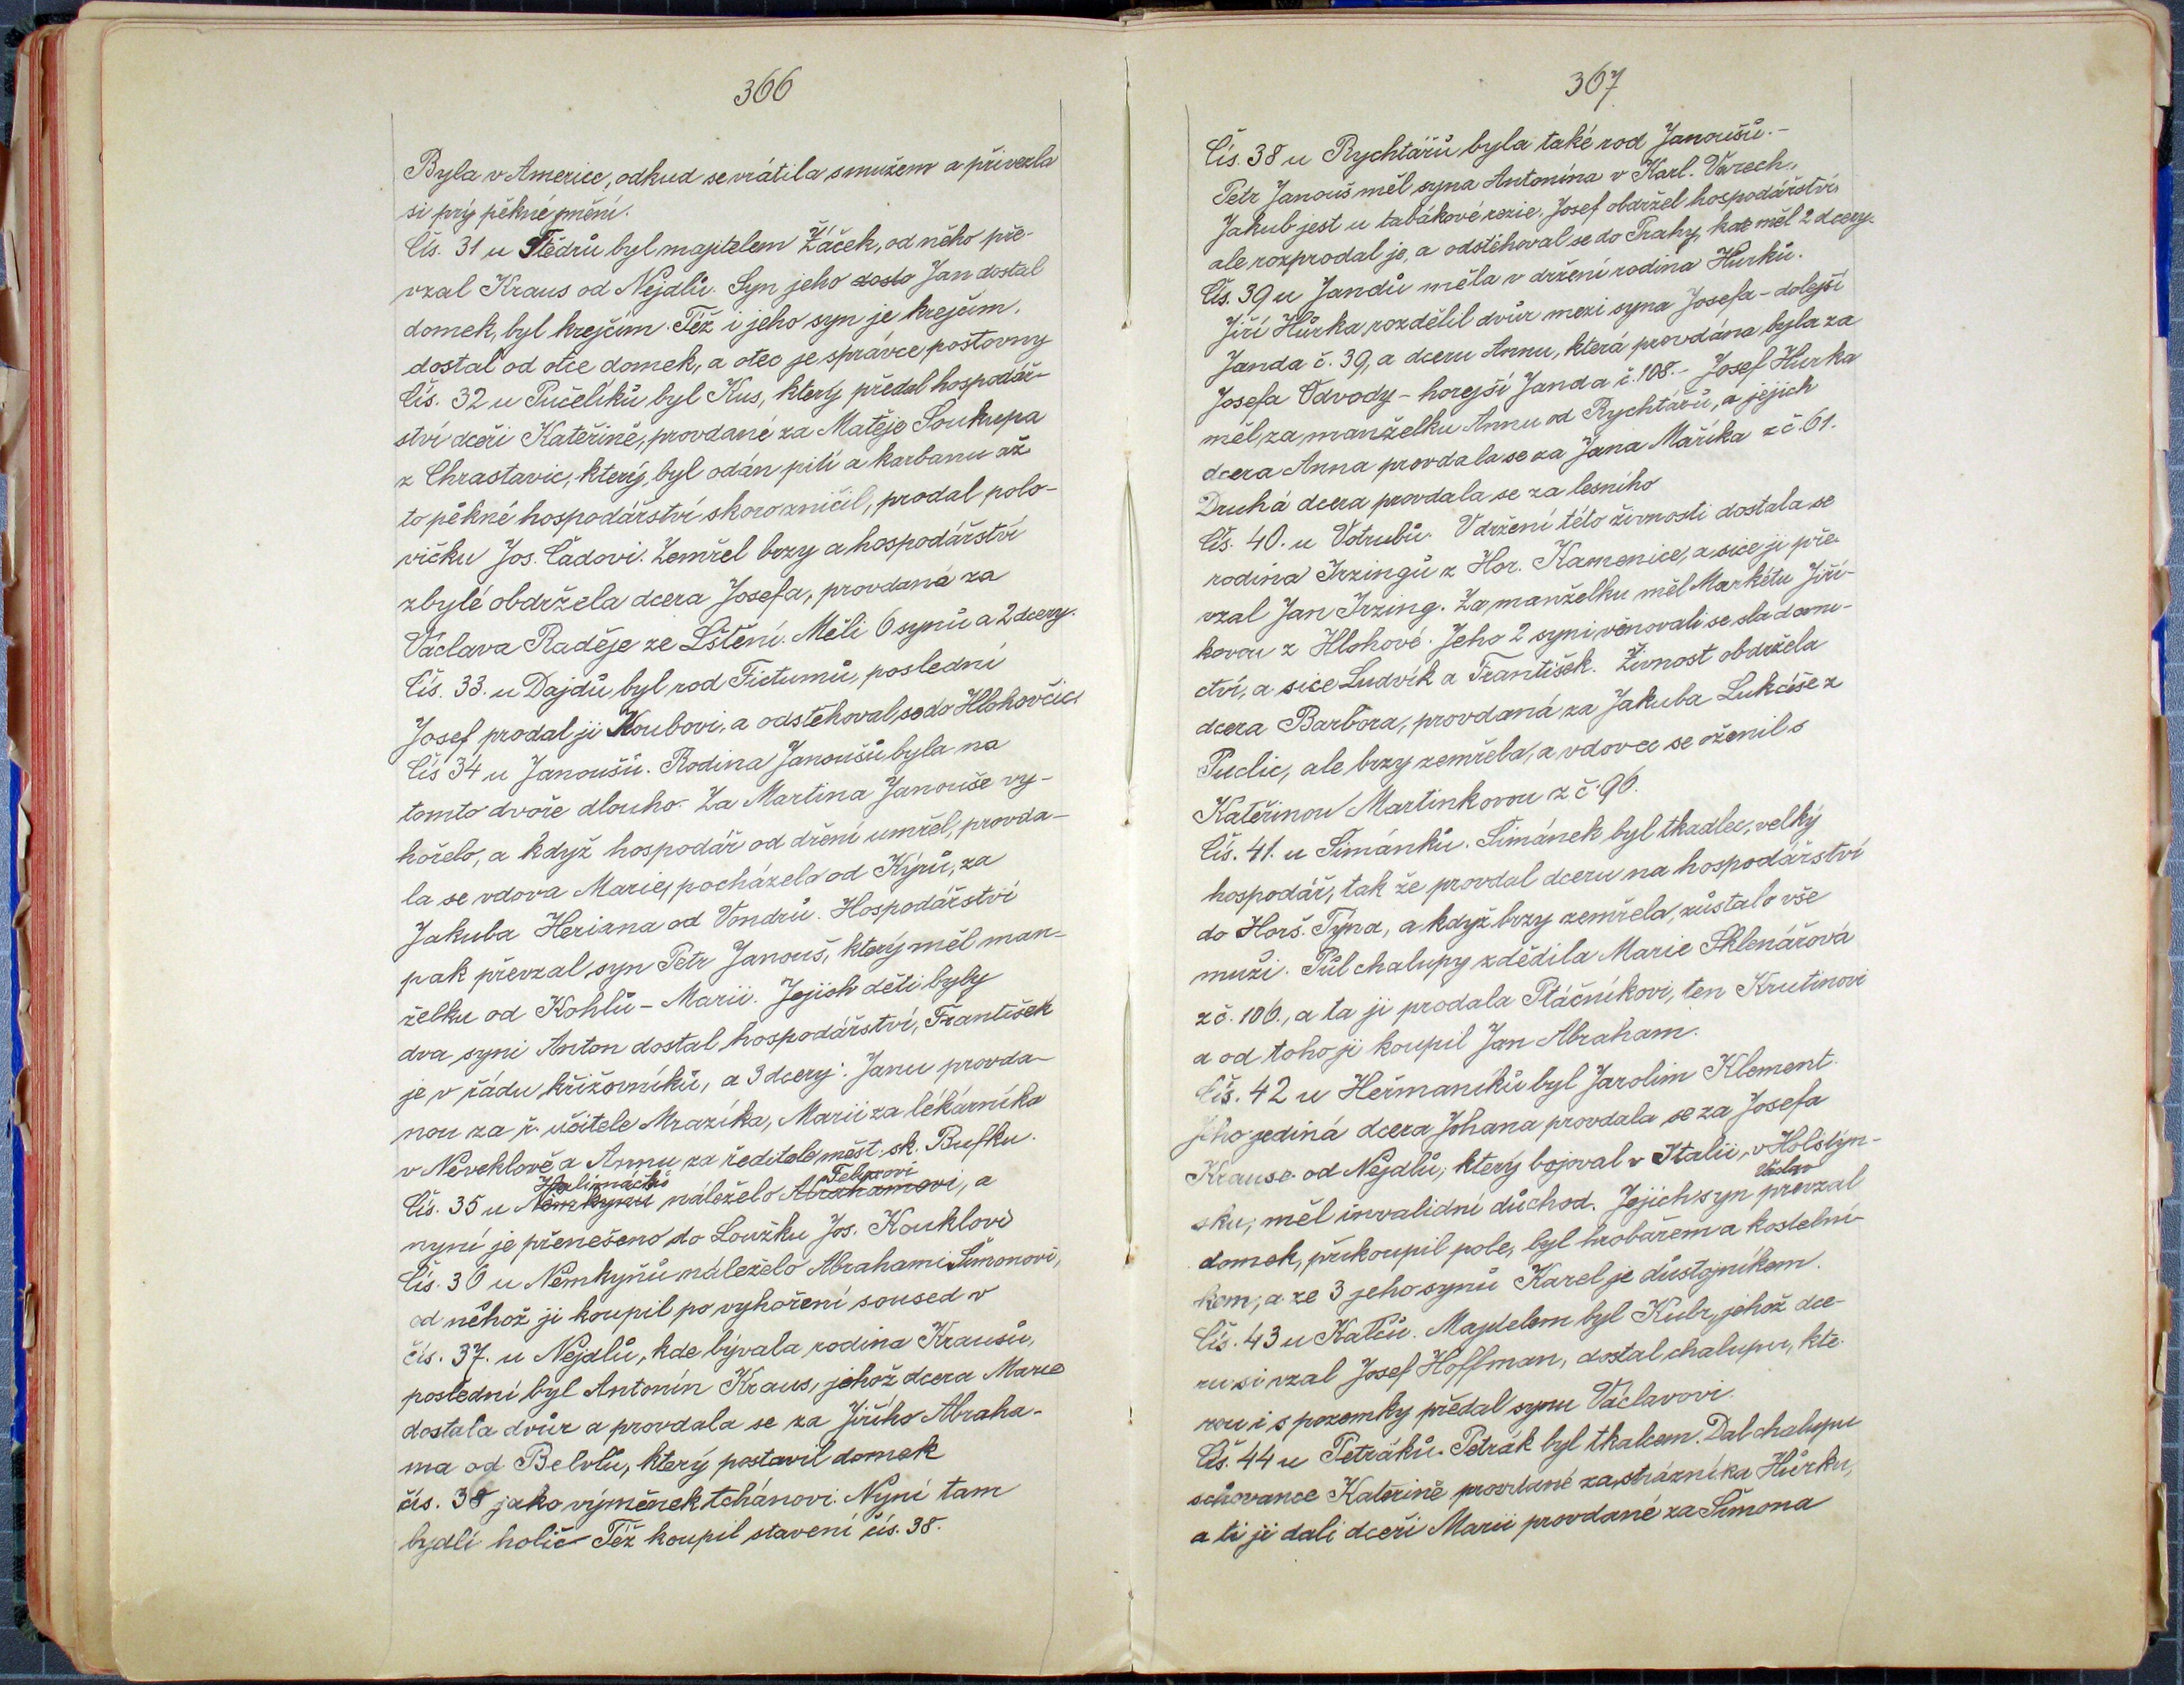 366
Byla v Americe, odkud se vrátila s mužem a přivezla
si prý pěkné jmění.
Čís. 31 u Štědrů byl majitelem Žáček, od něho pře-
vzal Kraus od Nejdlů. Syn jeho dosto Jan dostal
domek, byl krejčím. Též i jeho syn je krejčím,
dostal od otce domek, a otec je správce poštovny
Čís. 32 u Pučelíků byl Kus, který předal hospodář-
ství dceři Kateřině, provdané za Matěje Soukupa
z Chrastavic, který byl odán pití a karbanu až
to pěkné hospodářství skoro zničil, prodal polo-
vičku Jos. Čadovi. Zemřel brzy a hospodářství
zbylé obdržela dcera Josefa, provdaná za
Václava Raděje ze Lštění. Měli 6 synů a 2 dcery.
Čís. 33. u Dajdů byl rod Fictumů, poslední
Josef prodal ji Koubovi, a odstěhoval se do Hlohovčic.
Čís 34 u Janoušů. Rodina Janoušů byla na
tomto dvoře dlouho. Za Martina Janouše vy-
hořelo, a když hospodář od dření umřel, provda-
la se vdova Marie, pocházela od Kýrů, za
Jakuba Heriana od Vondrů. Hospodářství
pak převzal syn Petr Janouš, který měl man-
želku od Kohlů - Marii. Jejich děti byly
dva syni Anton dostal hospodářství, František
je v řádu křižovníků, a 3 dcery: Janu provda-
nou za ř. učitele Mrazíka, Marii za lékárníka
v Neveklově a Annu za ředitele měst. sk. Bufku.
Halimáčků Felixovi
Čís. 35 u Němkyňů náleželo Abrahamovi, a
nyní je přenešeno do Loužku Jos. Kouklovi
Čís. 36 u Němkyňů náleželo Abrahami Šimonovi,
od něhož ji koupil po vyhoření soused v
čís. 37. u Nejdlů, kde bývala rodina Krausů,
poslední byl Antonín Kraus, jehož dcera Marie
dostala dvůr a provdala se za Jiřího Abraha-
ma od Belblů, který postavil domek
čís. 38 jako výměnek tchánovi. Nyní tam
bydlí holič Též koupil stavení čís. 38.
367
Čís. 38 u Rychtářů byla také rod Janoušů. -
Petr Janouš měl syna Antonína v Karl. Varech.
Jakub jest u tabákové rezie, Josef obdržel hospodářství,
ale rozprodal je, a odstěhoval se do Prahy, kde měl 2 dcery.
Čís. 39 u Jandů měla v držení rodina Hůrků.
Jiří Hůrka, rozdělil dvůr mezi syna Josefa - dolejší
Janda č. 39, a dceru Annu, která provdána byla za
Josefa Odvody - horejší Janda č. 108. - Josef Hurka
měl za manželku Annu od Rychtářů, a jejich
dcera Anna provdala se za Jana Maříka z č. 61.
Druhá dcera provdala se za lesního
Čís. 40. u Votrubů. V držení této živnosti dostala se
rodina Irzingů z Hor. Kamenice, a sice ji pře-
vzal Jan Irzing. Za manželku měl Markétu Jiří-
kovou z Hlohové. Jeho 2 syni věnovali se sladovni-
ctví, a sice Ludvík a František. Živnost obdržela
dcera Barbora, provdaná za Jakuba Lukáše z
Puclic, ale brzy zemřela, a vdovec se oženil s
Kateřinou Martinkovou z č. 96.
Čís. 41. u Šimánků. Šimánek byl tkadlec, velký
hospodář, tak že provdal dceru na hospodářství
do Horš. Týna, a když brzy zemřela, zůstalo vše
muži. Půl chalupy zdědila Marie Sklenářová
z č. 106., a ta ji prodala Ptáčníkovi, ten Krutinovi
a od toho ji koupil Jan Abraham.
Čís. 42 u Heřmaníků byl Jarolim Klement.
Jeho jediná dcera Johana provdala se za Josefa
Krause od Nejdlů, který bojoval v Italii, v Holstýn-
Václav
sku, měl invalidní důchod. Jejich syn převzal
domek, přikoupil pole, byl hrobařem a kostelní-
kem, a ze 3 jeho synů Karel je důstojníkem.
Čís. 43 u Kalců. Majdelem byl Kubr, jehož dce-
ru si vzal Josef Hoffman, dostal chalupu, kte-
rou i s pozemky předal synu Václavovi.
Čís. 44 u Petráků. Petrák byl tkalcem. Dal chalupu
schovance Kateřině provdané za strážníka Hůrku,
a ti ji dali dceři Marii provdané za Šimona